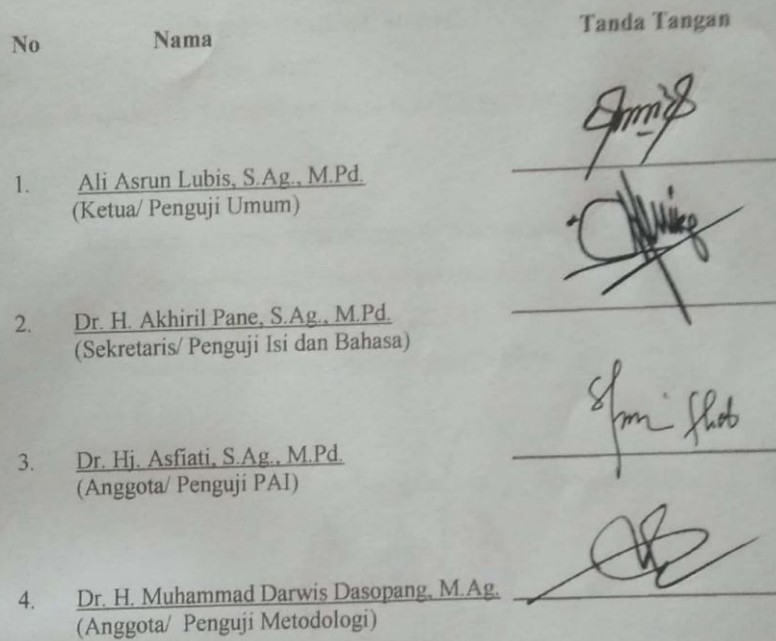 No Nama Tanda Tangan
1. Ali Asrun Lubis, S.Ag., M.Pd.
(Ketua/ Penguji Umum)
2. Dr. H. Akhiril Pane, S.Ag., M.Pd.
(Sekretaris/ Penguji Isi dan Bahasa)
3. Dr. Hj. Asfiati, S.Ag., M.Pd.
(Anggota/ Penguji PAI)
4. Dr. H. Muhammad Darwis Dasopang, M.Ag.
(Anggota/ Penguji Metodologi)